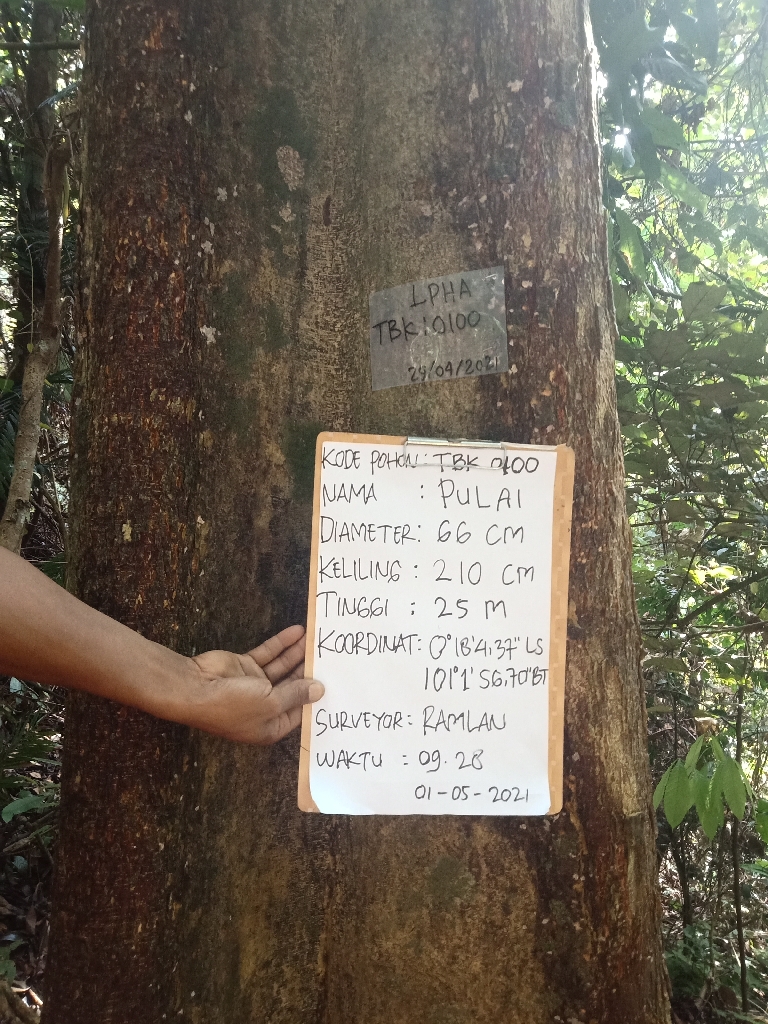 LPHA
TBK10100
29/04/2021
KODE POHON: TBK 10100
NAMA : PULAI
DIAMETER: 66 CM
KELILING : 210 CM
TINGGI : 25 M
KOORDINAT: 0°18'4,37" LS
101°1'56,70"BT
SURVEYOR: RAMLAN
WAKTU : 09.28
01-05-2021